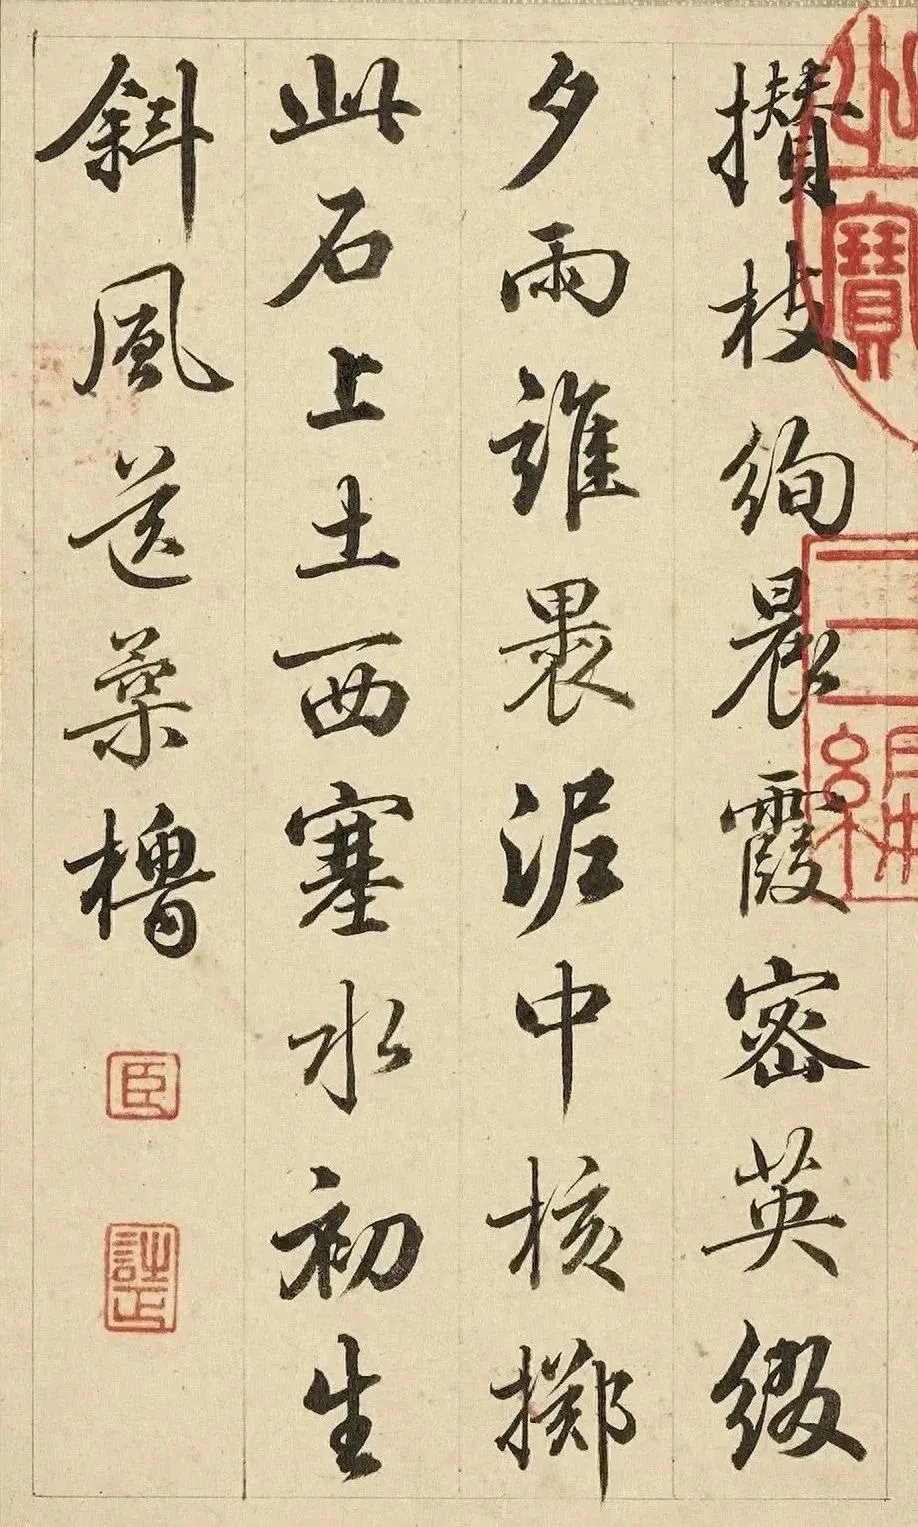 攅枝絢晨霞密英綴
夕雨誰畏泥中核擲
此石上土西塞水初生
斜風送柔櫓
臣
之寶